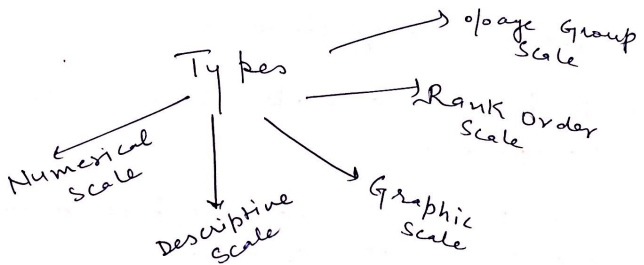 Types
%age Group
Scale
Rank Order
Scale
Graphic
Scale
Descriptive
Scale
Numerical
Scale